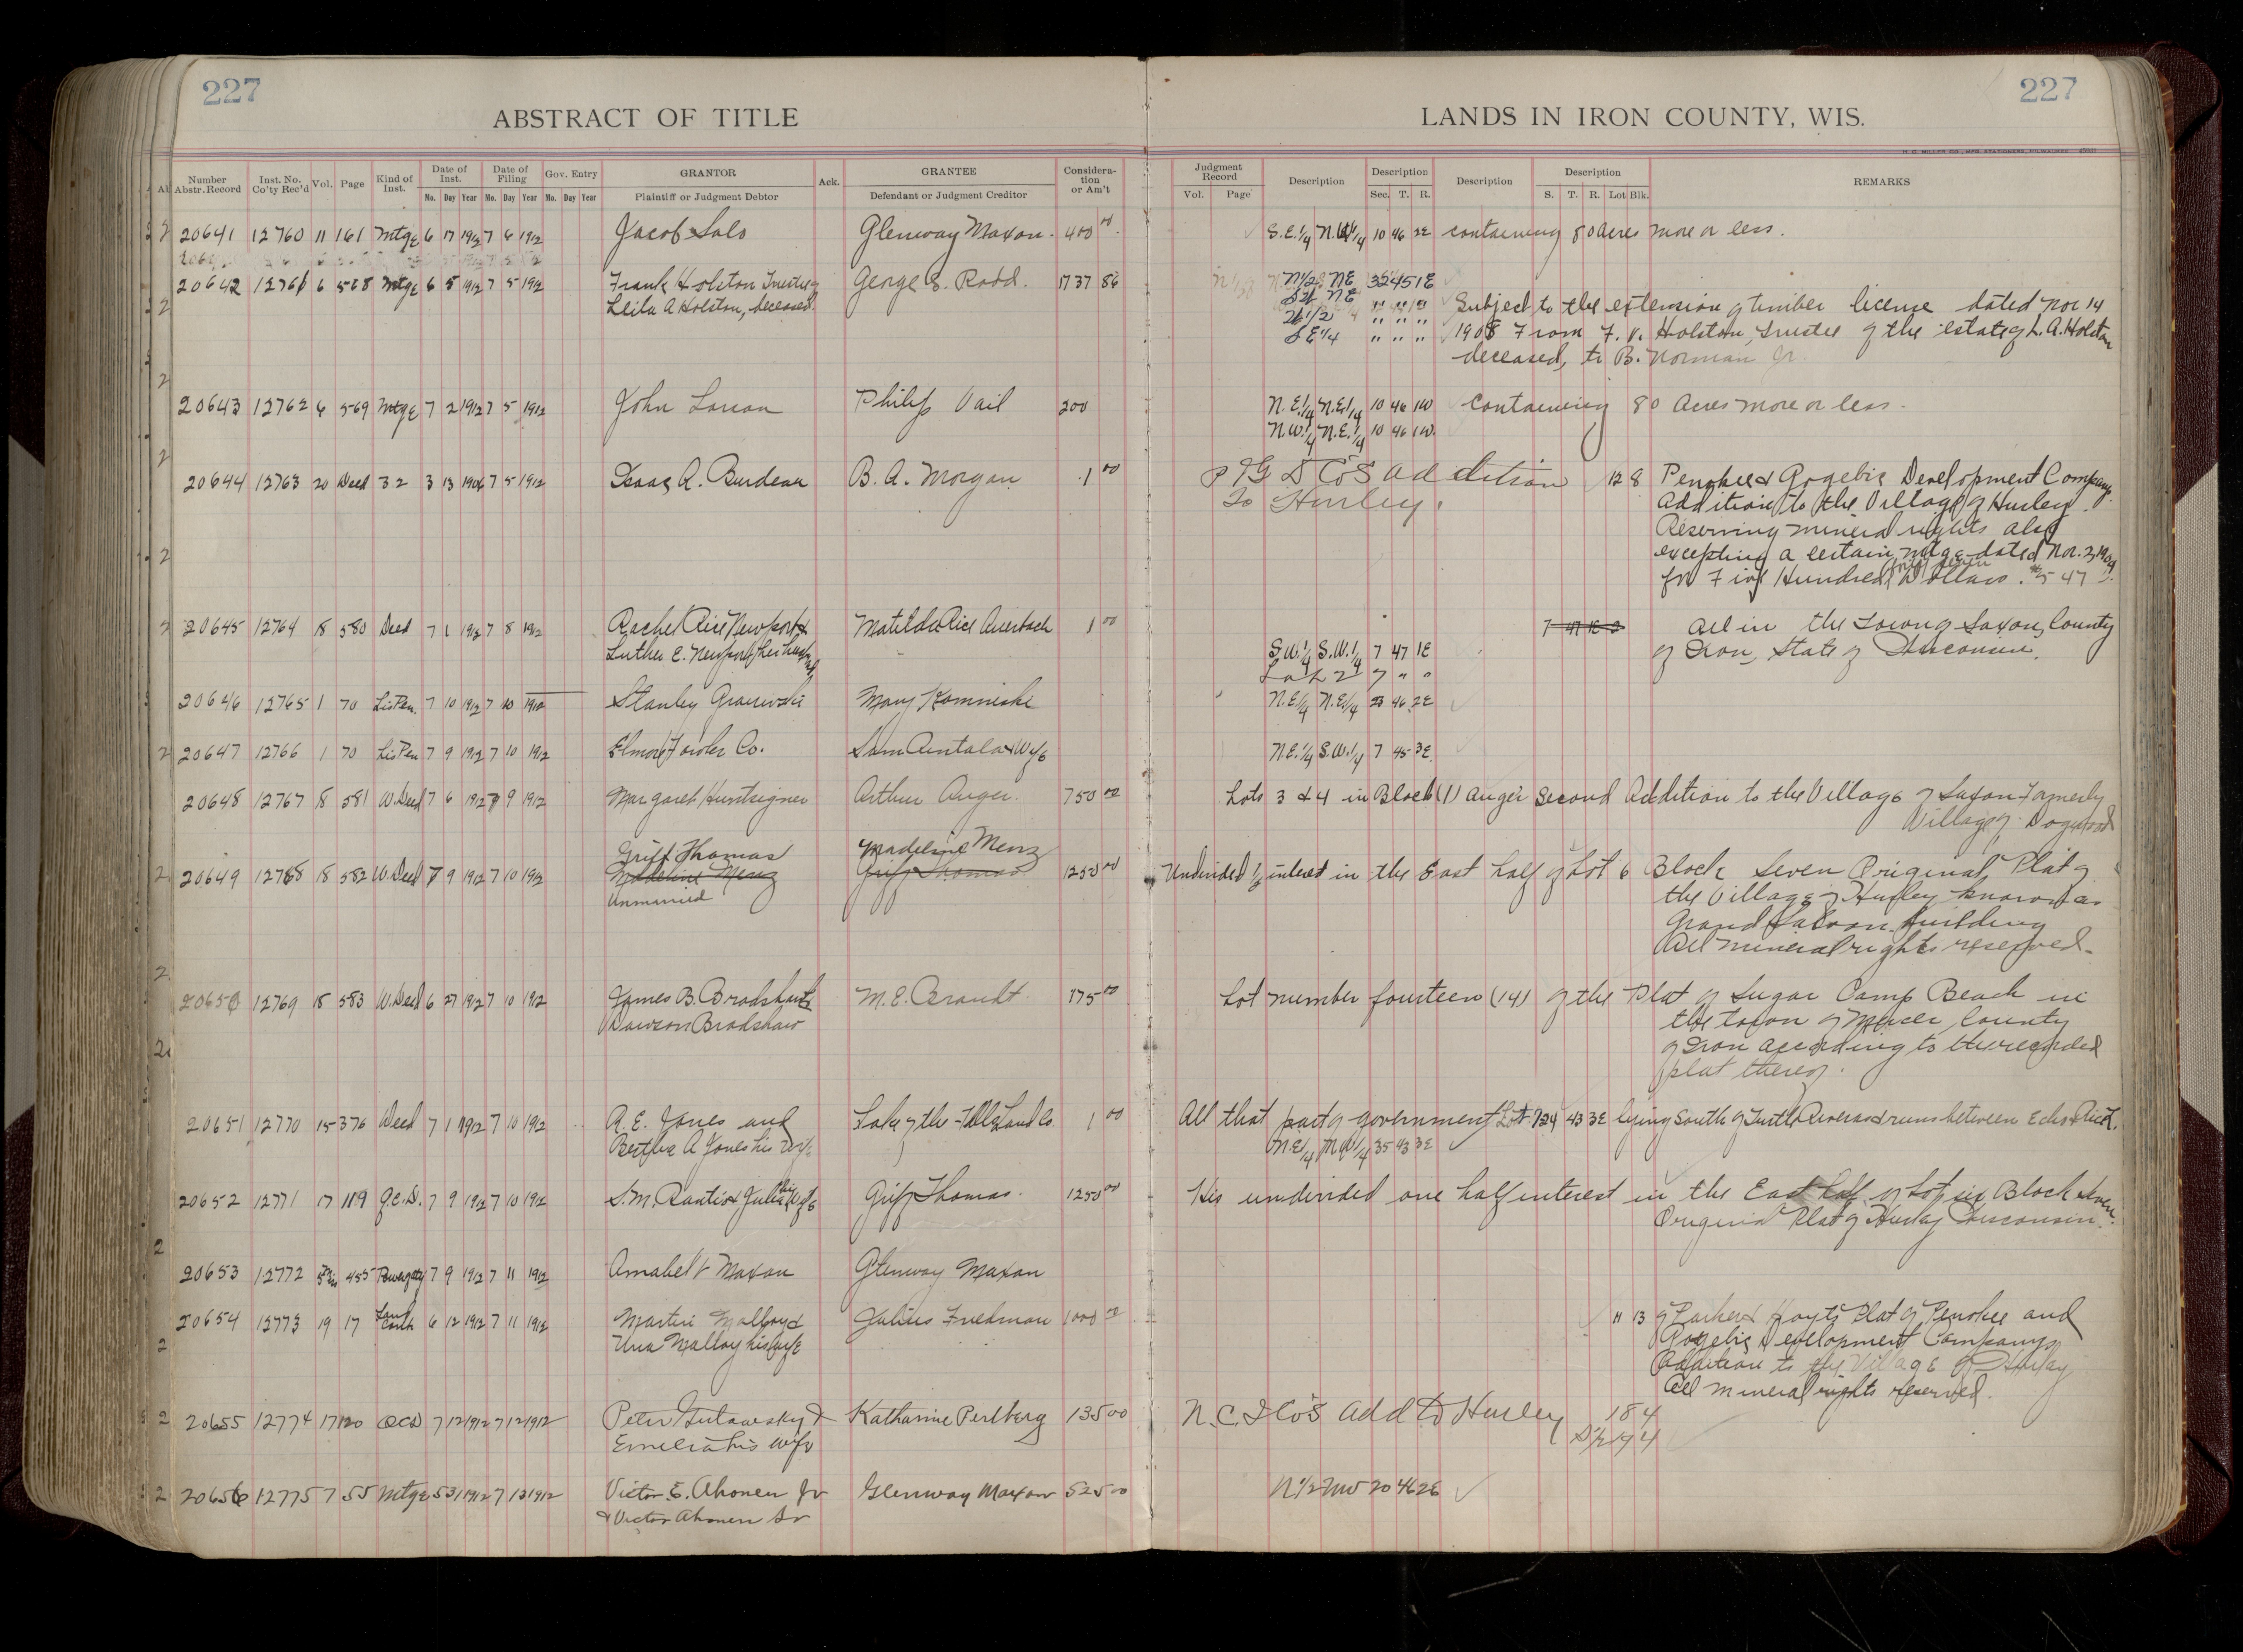 227
227
ABSTRACT OF TITLE
LANDS IN IRON COUNTY, WIS.
H. C. MILLER CO., MFG. STATIONERS, MILWAUKEE
Number Abstr. Record Inst. No. Co'ty Rec'd Vol. Page Kind of Inst. Date of Inst. Date of Filing Gov. Entry GRANTOR Ack. GRANTEE Considera-tion or Am't Judgment Record Description Description Description Description REMARKS
No. Day Year No. Day Year No. Day Year Plaintiff or Judgment Debtor Defendant or Judgment Creditor Vol. Page Sec. T. R. S. T. R. Lot Blk.
20641 12760 11 161 Mtge 6 17 1912 7 6 1912 Jacob Salo Glenway Maxon 400 00 S.E.1/4 N.W.1/4 10 46 2E containing 80 acres more or less.
20642 12761 6 568 Mtge 6 5 1912 7 5 1912 Frank Holston Trustee of George S. Rodd. 1737 86 N1/2 NE 32 45 1E
Leila A Holston, deceased. " " " Subject to the extension of timber license dated Nov 14
SE1/4 " " " 1908 From F. V. Holston, Trustee of the estate of L. A. Holston
deceased, to B. Norman Jr.
20643 12762 6 569 Mtge 7 2 1912 7 5 1912 John Larson Philip Vail 200 N.E.1/4 N.E.1/4 10 46 1W Containing 80 Acres more or less.
N.W.1/4 N.E.1/4 10 46 1W.
20644 12763 20 Deed 32 3 13 1906 7 5 1912 Isaac A. Burdeau B. A. Morgan 1 00 P & G D Co's addition 12 8 Penokee & Gogebic Development Company
To Hurley. Addition to the Village of Hurley.
Reserving mineral rights also
excepting a certain mtge dated Nov. 2, 1904
for Five Hundred forty seven Dollars. $547
20645 12764 18 580 Deed 7 1 1912 7 8 1912 Rachel Rice Newport & Matilda Rice Auerbach 1 00 All in the Town of Saxon, County
Luther E. Newport, her husband S.W.1/4 S.W.1/4 7 47 1E of Iron, State of Wisconsin.
Lot 2 7 " "
20646 12765 1 70 Lis Pen. 7 10 1912 7 10 1912 Stanley Mary Kominski N.E.1/4 N.E.1/4 23 46 2E
20647 12766 1 70 Lis Pen 7 9 1912 7 10 1912 Elmore Fowler Co. Sam Rintala & Wife N.E.1/4 S.W.1/4 7 45 3E.
20648 12767 18 581 W. Deed 7 6 1912 7 9 1912 Margaret Huntsigner Arthur Auger. 750 00 Lots 3 & 4 in Block (1) Auger Second Addition to the Village of Saxon Formerly
Village of Dogwood
20649 12768 18 582 W. Deed 7 9 1912 7 10 1912 Griff Thomas Madeline Menz 1250 00 Undivided 1/2 interest in the East half of Lot 6 Block Seven Original Plat of
Madeline Menz Griff Thomas the Village of Hurley known as
Unmarried Grand Saloon building
All mineral rights reserved.
20650 12769 18 583 W. Deed 6 27 1912 7 10 1912 James B. Bradshaw & M. E. Brandt 175 00 Lot number fourteen (14) of the Plat of Sugar Camp Beach in
Dawson Bradshaw the town of Mercer, County
of Iron according to the recorded
plat thereof.
20651 12770 15 376 Deed 7 1 1912 7 10 1912 A. E. Jones and Lake of the Falls Land Co. 1 00 All that part of government Lot 7 24 43 3E lying South of Turtle River and runs between Echo &
Bertha A Jones his Wife N.E.1/4 N.W.1/4 35 43 3E
20652 12771 17 119 Q.C.D. 7 9 1912 7 10 1912 S. M. Rantio & Julia his Wife Griff Thomas. 1250 00 His undivided one half interest in the East half of Lot six Block seven
Original Plat of Hurley Wisconsin.
20653 12772 455 7 9 1912 7 11 1912 Amabel V Maxon Glenway Maxon
20654 12773 19 17 Land Contr 6 12 1912 7 11 1912 Martin Malloy & Julius Friedman 1000 00 11 13 of Parker & Hoyts Plat of Penokee and
Una Malloy his wife Gogebic Development Companys
Addition to the Village of Hurley
All mineral rights reserved.
20655 12774 17 120 QCD 7 12 1912 7 12 1912 Peter Gutowsky & Katharine Perlberg 1350 00 N. C. I Co's Add to Hurley 18 4
Emelia his wife S1/2 19 4
20656 12775 7 55 Mtge 5 31 1912 7 13 1912 Victor E. Ahonen Jr Glenway Maxon 525 00 N1/2 NW 20 46 2E
& Victor Ahonen Sr